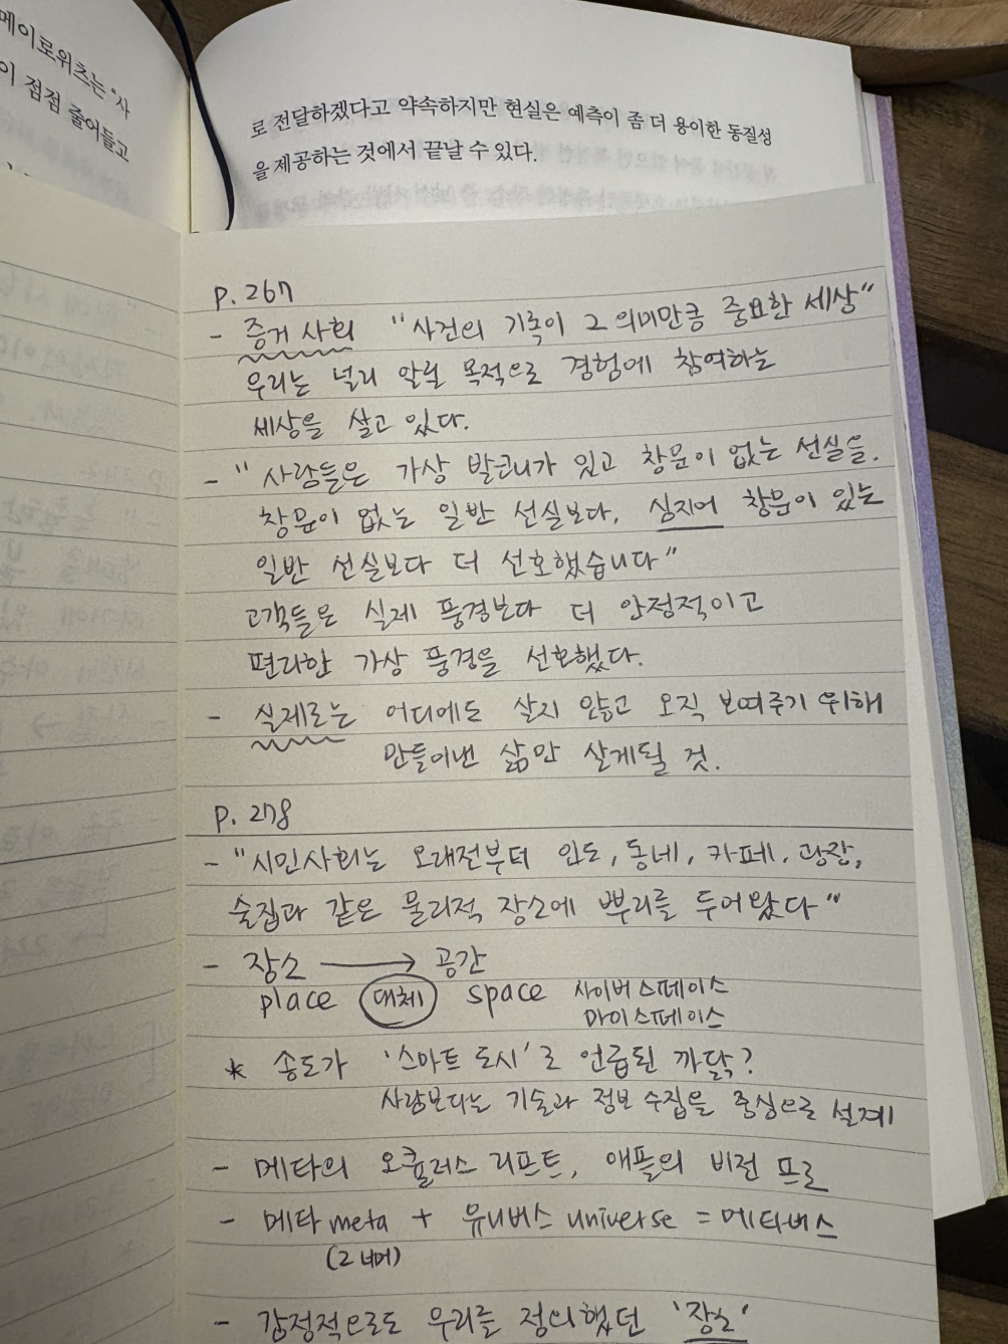 메이로위츠는 "사
이 점점 줄어들고
로 전달하겠다고 약속하지만 현실은 예측이 좀 더 용이한 동질성
을 제공하는 것에서 끝날 수 있다.
p. 267
- 증거 사회 "사건의 기록이 그 의미만큼 중요한 세상"
우리는 널리 알릴 목적으로 경험에 참여하는
세상을 살고 있다.
- "사람들은 가상 발코니가 있고 창문이 없는 선실을,
창문이 없는 일반 선실보다, 심지어 창문이 있는
일반 선실보다 더 선호했습니다"
고객들은 실제 풍경보다 더 안정적이고
편리한 가상 풍경을 선호했다.
- 실제로는 어디에도 살지 않고 오직 보여주기 위해
만들어낸 삶만 살게될 것.
p. 278
- "시민사회는 오래전부터 인도, 동네, 카페, 광장,
술집과 같은 물리적 장소에 뿌리를 두어왔다"
- 장소 → 공간
place 대체 space 사이버스페이스
마이스페이스
* 송도가 '스마트 도시'로 언급된 까닭?
사람보다는 기술과 정보 수집을 중심으로 설계
- 메타의 오큘러스 리프트, 애플의 비전 프로
- 메타 meta + 유니버스 universe = 메타버스
(그 너머)
- 감정적으로도 우리를 정의했던 '장소'